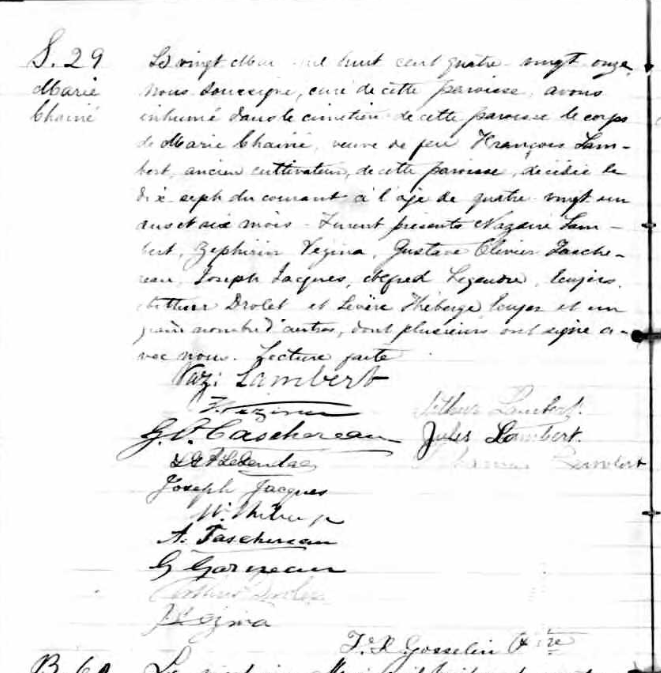 S. 29
Marie
Chainé
Le vingt Mai mil huit cent quatre-vingt onze,
nous soussigné, curé de cette paroisse, avons
inhumé dans le cimetière de cette paroisse le corps
de Marie Chainé, veuve de feu François Lam-
bert, ancien cultivateur, de cette paroisse, décédée le
dix-sept du courant à l'age de quatre-vingt un
ans et six mois. Furent présents Nazaire Lam-
bert, Zephirin Vezina, Gustave Olivier Tasche-
reau, Joseph Jacques, Alfred Legendre,
Arthur Drolet et et un
grand nombre d'autres, dont plusieurs ont signé a-
vec nous. Lecture faite
Naz: Lambert
Z. Vezina
Arthur Lambert.
G. O. Taschereau
Jules Lambert.
Lambert
Joseph Jacques
A. Taschereau
G Garneau
Arthur Drolet
J Vezina
F. X. Gosselin Ptre
B. 60